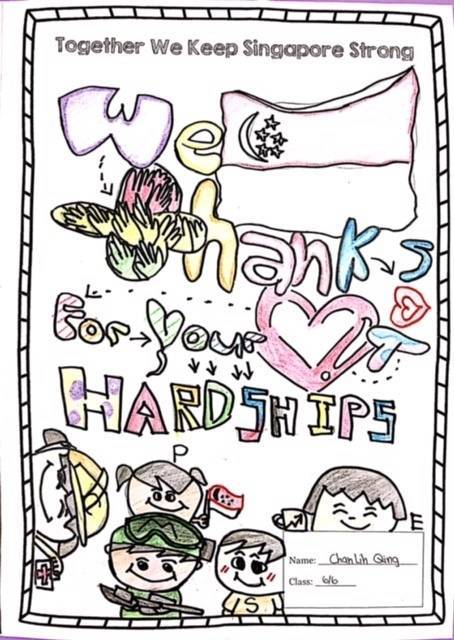 Together We Keep Singapore Strong
We
Thanks
For Your
HARDSHIPS
P
E
S
Name: Chan Lih Qing
Class: 6/6